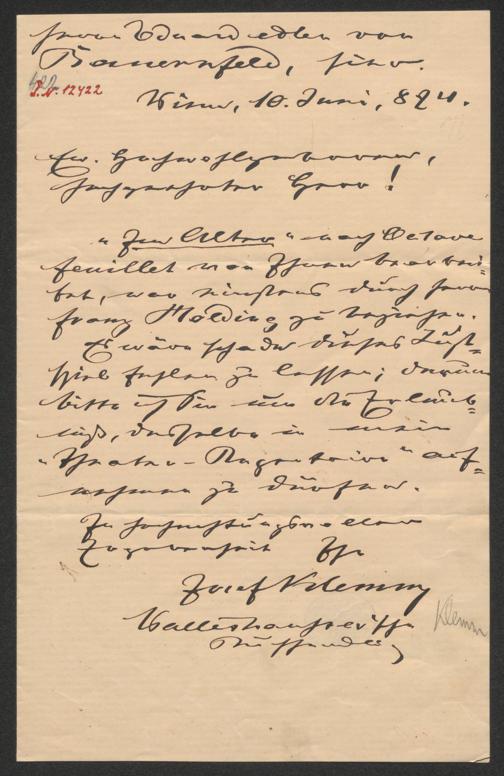 Herrn Eduard edlen von
Bauernfeld, hier.
I.N. 12422
Wien, 10. Juni, 84.
Ew. Hochwohlgeboren,
hochgeehrter Herr!
"Im Alter" nach Octave
Feuillet von Ihnen bearbei=
tet, war einstens durch Herrn
Franz Holding zu beziehen.
Es wäre schade dieses Lust=
spiel fehlen zu lassen; darum
bitte ich Sie um die Erlaub=
niß, dasselbe in mein
"Theater-Repertoire" auf=
nehmen zu dürfen.
In hochachtungsvoller
Ergebenheit Ihr
Josef Klemm
Wallishausser'sche
Klemm